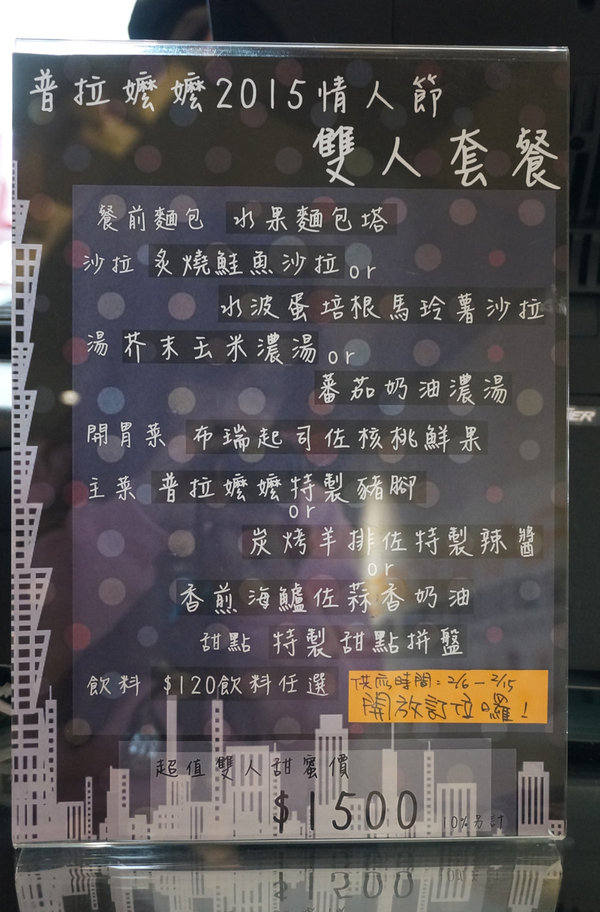 普拉嬤嬤2015情人節
雙人套餐
餐前麵包 水果麵包塔
沙拉 炙燒鮭魚沙拉or
水波蛋培根馬玲薯沙拉
湯 芥末玉米濃湯or
蕃茄奶油濃湯
開胃菜 布瑞起司佐核桃鮮果
主菜 普拉嬤嬤特製豬腳
or
炭烤羊排佐特製辣醬
or
香煎海鱸佐蒜香奶油
甜點 特製甜點拼盤
飲料 $120飲料任選
供應時間：2/6-2/15
開放訂位囉！
超值雙人甜蜜價
$1500 10%另計